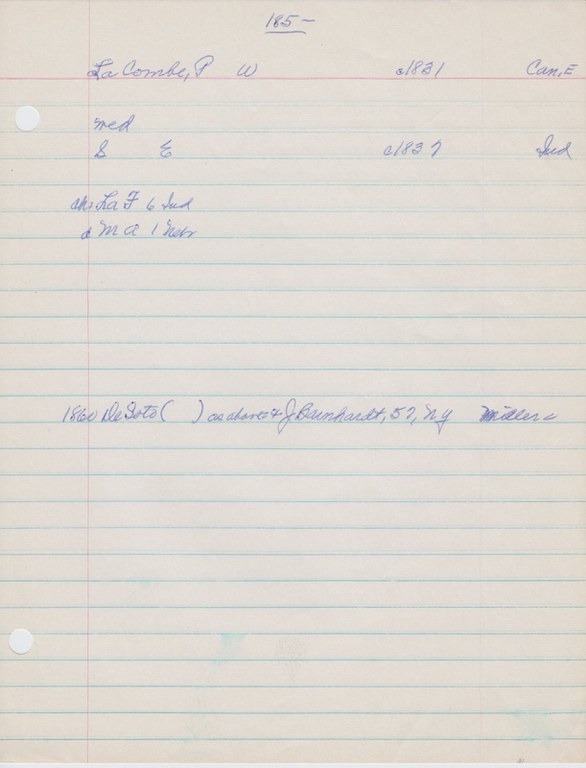 185-
La Combe, P W c1831 Can, E
med
S E c1837 Ind
ch: La F 6 Ind
d M A 1 Nebr
1860 DeSoto ( ) as above & J Barnhardt, 52, NY Millers